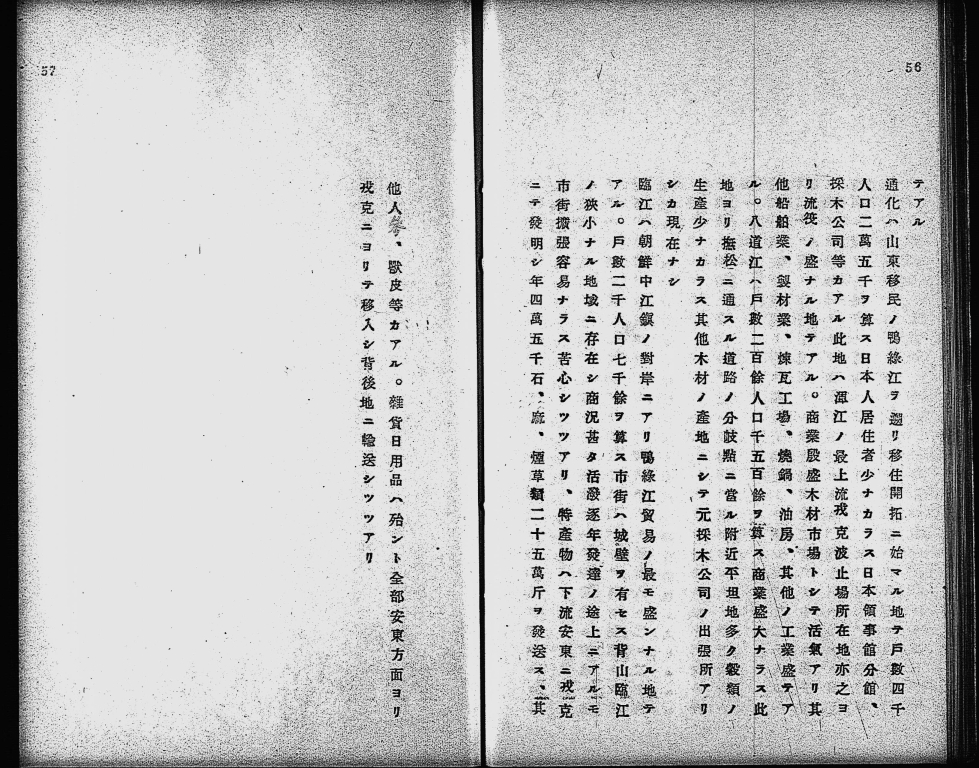 56
テアル
通化ハ山東移民ノ鴨綠江ヲ遡リ移住開拓ニ始マル地テ戶數四千
人口二萬五千ヲ算ス日本人居住者少ナカラス日本領事館分館、
採木公司等カアル此地ハ渾江ノ最上流戎克波止場所在地亦之ヨ
リ流筏ノ盛ナル地テアル。商業殷盛木材市場トシテ活氣アリ其
他船舶業、製材業、煉瓦工場、燒鍋、油房、其他ノ工業盛テア
ル。八道江ハ戶數二百餘人口千五百餘ヲ算ス商業盛大ナラス此
地ヨリ撫松ニ通スル道路ノ分歧點ニ當ル附近平坦地多ク穀類ノ
生產少ナカラス其他木材ノ產地ニシテ元採木公司ノ出張所アリ
シカ現在ナシ
臨江ハ朝鮮中江鎭ノ對岸ニアリ鴨綠江貿易ノ最モ盛ンナル地テ
アル。戶數二千人口七千餘ヲ算ス市街ハ城壁ヲ有セス背山臨江
ノ狹小ナル地域ニ存在シ商況甚タ活潑逐年發達ノ途上ニアルモ
市街擴張容易ナラス苦心シツツアリ、特產物ハ下流安東ニ戎克
ニテ發明シ年四萬五千石、麻、煙草類二十五萬斤ヲ發送ス、其
57
他人參、獸皮等カアル。雜貨日用品ハ殆ント全部安東方面ヨリ
戎克ニヨリテ移入シ背後地ニ輸送シツツアリ